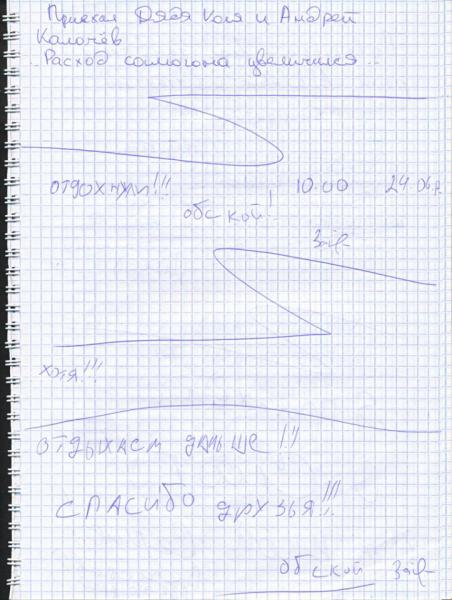 Приехал Дядя Коля и Андрей
Калачёв
Расход самогона увеличился..
ОТДОХНУЛИ!!! 10.00 24.06.
обской!
хотя!!!
ОТДЫХАЕМ ДАЛЬШЕ!!!
СПАСИБО ДРУЗЬЯ!!!
обской